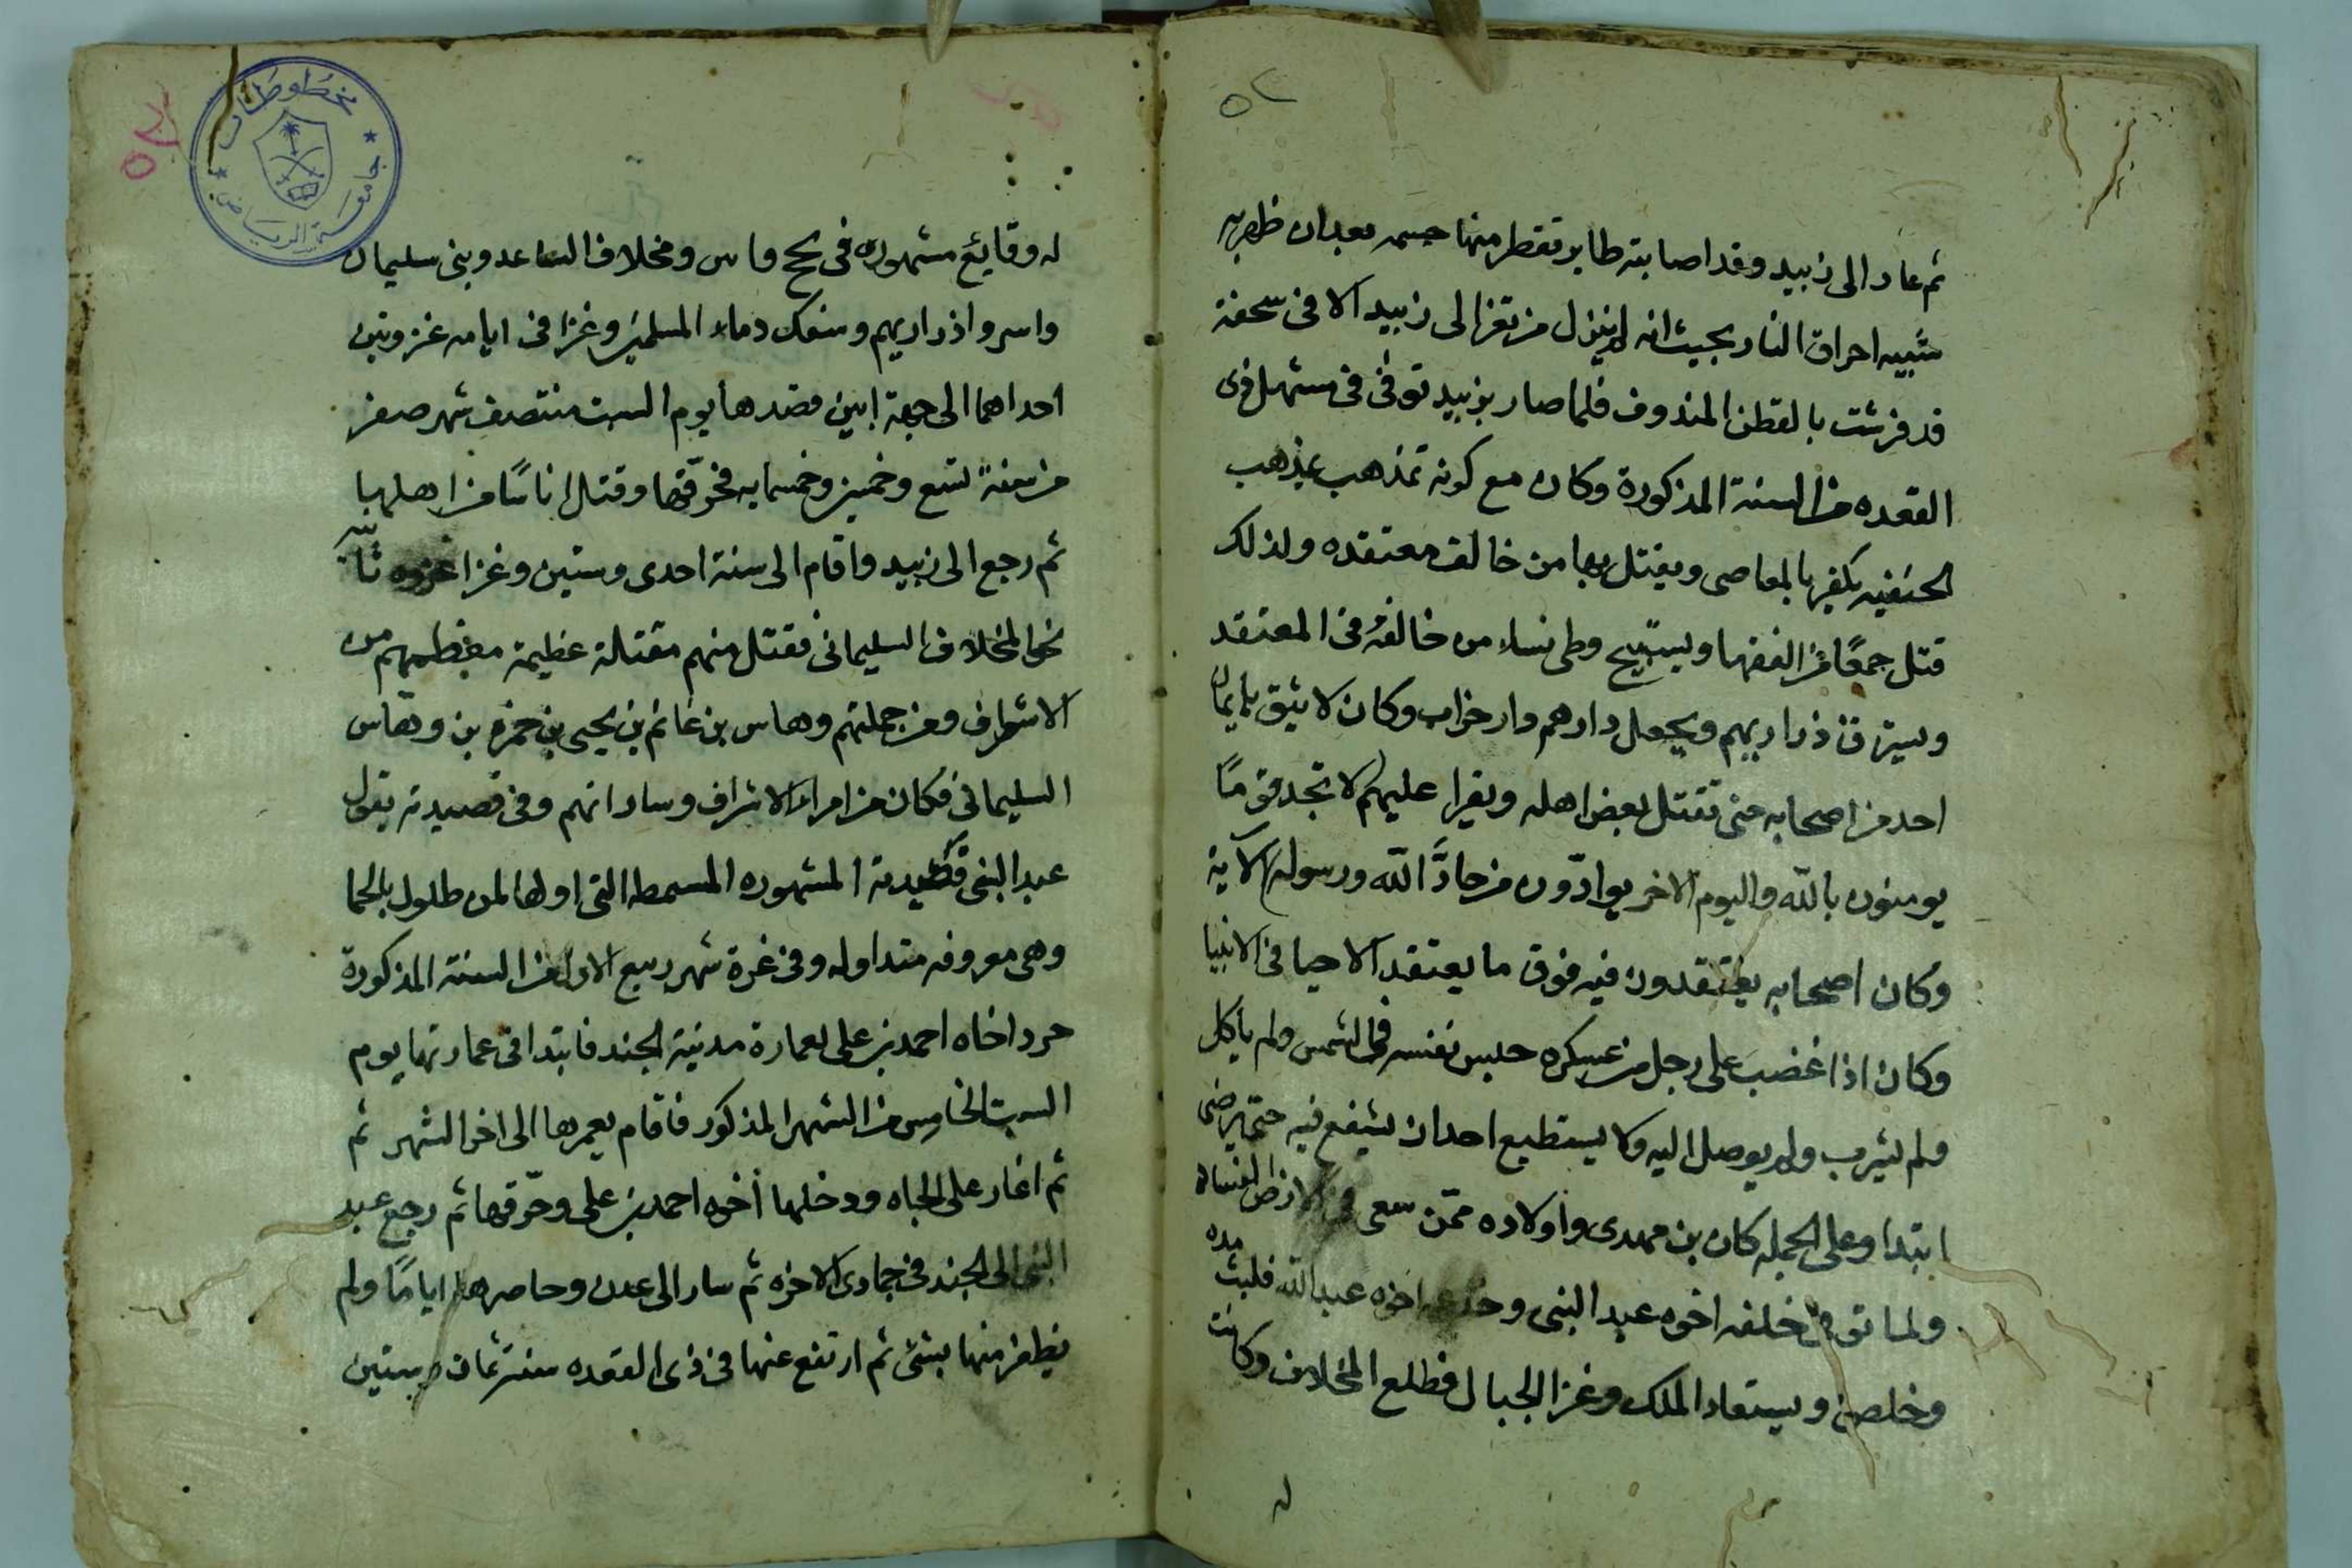 ٥٢
ثم عاد الى زبيد وقد اصابته طاير تقطر منها جسمه بعد ان ظهر به
شبيه احراق النار بحيث انه لم ينزل من تعز الى زبيد الا فى محفة
قد فرشت بالقطن المندوف فلما صار بزبيد توفى فى مستهل ذى
القعده من السنة المذكورة وكان مع كونه تمذهب بمذهب
الحنفيه يكفر بالمعاصى ويقتل بها من خالف معتقده ولذلك
قتل جمعًا من الفقها ويستبيح وطى نساء من خالفه فى المعتقد
ويسترق ذراريهم ويجعل دارهم دار حراب وكان لا يثق بايمان
احد من اصحابه حتى تقتل بعض اهله ويقرا عليهم لا تجد قومًا
يومنون بالله واليوم الاخر يوادّون من حادَّ الله ورسوله الآية
وكان اصحابه يعتقدون فيه فوق ما يعتقد الاحيا فى الانبيا
وكان اذا غضب على رجل من عسكره حبس نفسه فى الشمس ولم ياكل
ولم يشرب ولم يوصل اليه ولا يستطيع احد ان يشفع فيه حتى يرضى
ابتدا وعلى الجمله كان بن مهدى واولاده ممّن سعى فى الارض الفساد
ولما توفى خلفه اخوه عبد النبى وخدعه اخوه عبد الله فلبث مده
وخلص ويستعاد الملك وغزا الجبال فطلع المخلاف وكانت
له
له وقايع مشهوره فى لحج و ومخلاف الساعد وبنى سليمان
واسروا ذراريهم وسفك دماء المسلمين وغزا فى ايامه غزوتين
احداهما الى جهة ابين قصدها يوم السبت منتصف شهر صفر
من سنة تسع وخمسين وخمسمايه فحرّقها وقتل اناسًا من اهلها
ثم رجع الى زبيد واقام الى سنة احدى وستين وغزا غزوه ثانيه
نحو المخلاف السليمانى فقتل منهم مقتلة عظيمة معظمهم من
الاشراف ومن جملتهم وهاس بن غانم بن يحيى بن حمزه بن وهّاس
السليمانى فكان من امراء الاشراف وساداتهم وفى قصيدته يقول
عبد النبى قصيدته المشهوره المسمطه التى اولها لمن طلول بالحما
وهى معروفه متداوله وفى غرة شهر ربيع الاول من السنة المذكورة
جرد اخاه احمد بن على لعمارة مدينة الجند فابتدا فى عمارتها يوم
السبت الخامس من الشهر المذكور فاقام يعمرها الى اخر الشهر ثم
ثم اغار على الجباه ودخلها اخوه احمد بن على وحرّقها ثم رجع عبد
النبى الى الجند فى جمادى الاخره ثم سار الى عدن وحاصرها اياما ولم
يظفر منها بشئ ثم ارتفع عنها فى ذى القعده سنة ثمان وستين
مخطوطات
جامعة الرياض